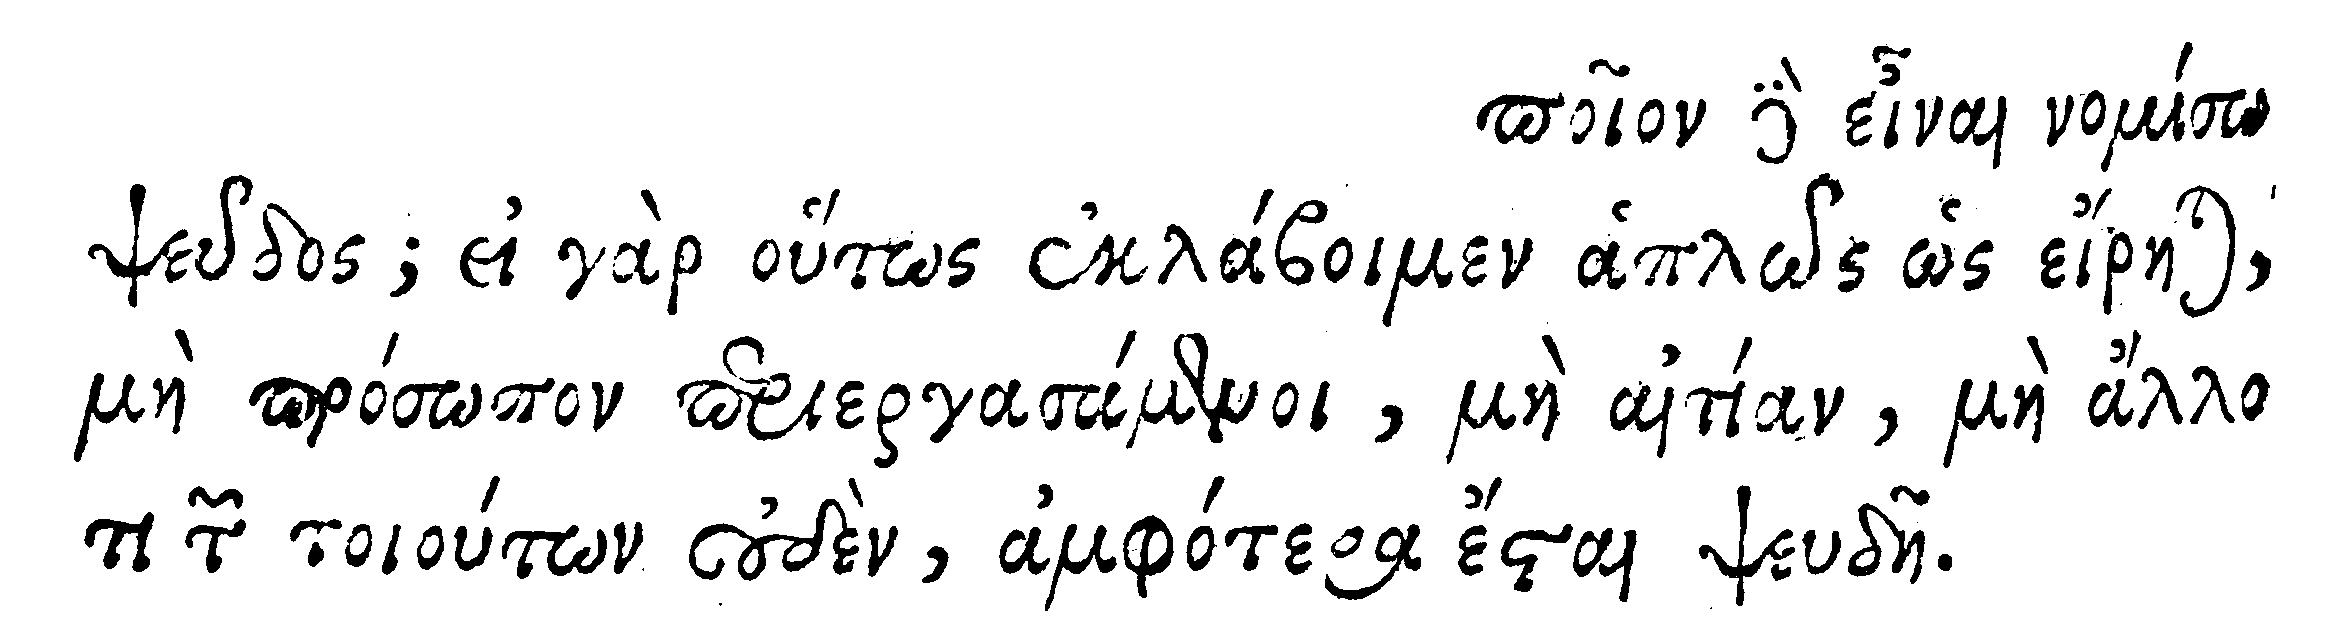 ποῖον ϗ̈̀ εἶναι νομίσω
ψεῦδος; εἰ γὰρ οὕτως ἐκλάβοιμεν ἁπλῶς ὡς εἴρηται,
μὴ πρόσωπον περιεργασάμενοι, μὴ αἰτίαν, μὴ ἄλλο
τι τῶν τοιούτων οὐδὲν, ἀμφότερα ἔσται ψευδῆ.